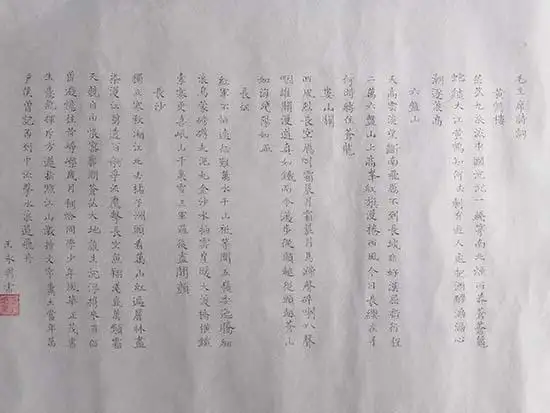 毛主席詩詞
黄鶴樓
茫茫九派流中國沉沉一線穿南北煙雨莽蒼蒼龜
蛇鎖大江黃鶴知何去剩有遊人處把酒酹滔滔心
潮逐浪高
六盤山
天高雲淡望斷南飛雁不到長城非好漢屈指行程
二萬六盤山上高峯紅旗漫捲西風今日長纓在手
何時縛住蒼龍
婁山關
西風烈長空雁叫霜晨月霜晨月馬蹄聲碎喇叭聲
咽雄關漫道真如鐵而今邁步從頭越從頭越蒼山
如海殘陽如血
長征
紅軍不怕遠征難萬水千山祗等閒五嶺逶迤騰細
浪烏蒙磅礴走泥丸金沙水拍雲崖暖大渡橋橫鐵
索寒更喜岷山千里雪三軍過後盡開顏
長沙
獨立寒秋湘江北去橘子洲頭看萬山紅遍層林盡
染漫江碧透百舸爭流鷹擊長空魚翔淺底萬類霜
天競自由悵寥廓問蒼茫大地誰主沉浮攜來百侶
曾遊憶往昔崢嶸歲月稠恰同學少年風華正茂書
生意氣揮斥方遒指點江山激揚文字糞土當年萬
户侯曾記否到中流擊水浪遏飛舟
王永 書